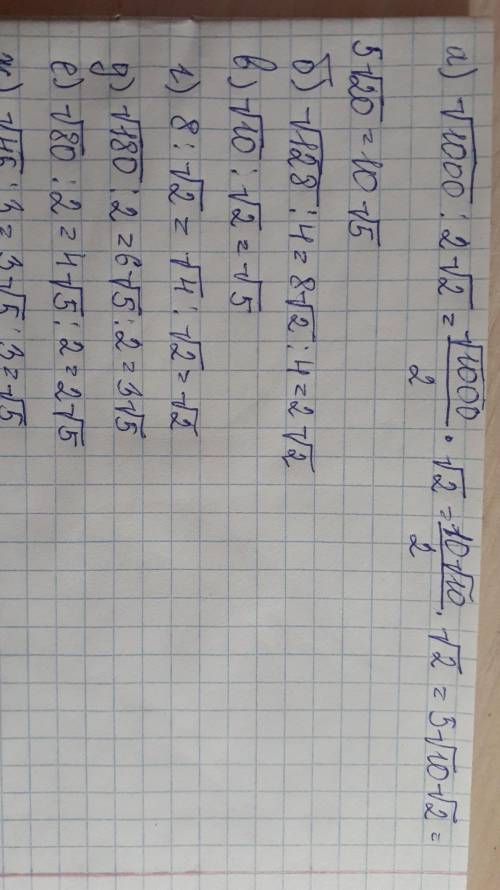 а) √1000 : 2√2 = √1000/2 · √2 = 10√10/2 · √2 = 5√10√2 =
5√20 = 10√5
б) √128 : 4 = 8√2 : 4 = 2√2
в) √10 : √2 = √5
г) 8 : √2 = √4 : √2 = √2
д) √180 : 2 = 6√5 : 2 = 3√5
е) √80 : 2 = 4√5 : 2 = 2√5
ж) √45 : 3 = 3√5 : 3 = √5